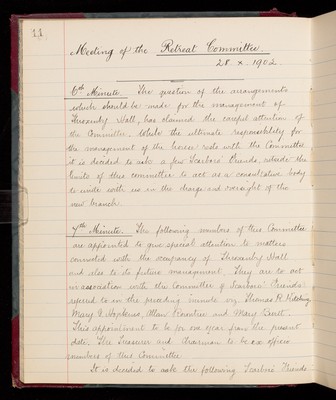 11
Meeting of the Retreat Committee.
28. x. 1902.
6th Minute. The question of the arrangements
which should be made for the management of
Throxenby Hall, has claimed the careful attention of
the Committee. While the ultimate responsibility for
the management of the house rests with the Committee
it is decided to ask a few Scarboro' Friends, outside the
limits of this committee to act as a consultative body
to unite with us in the charge and oversight of the
new branch.
7th Minute. The following members of this Committee
are appointed to give special attention to matters
connected with the occupancy of Throxenby Hall
and also to its future management. They are to act
in association with the Committee of Scarboro' Friends
referred to in the preceding minute viz Thomas R.
Mary J. Hopkins, Allan Rowntree and Mary
This appointment to be for one year from the present
date. The Treasurer and chairman to be ex officio
members of this Committee.
It is decided to ask the following Scarboro' Friends